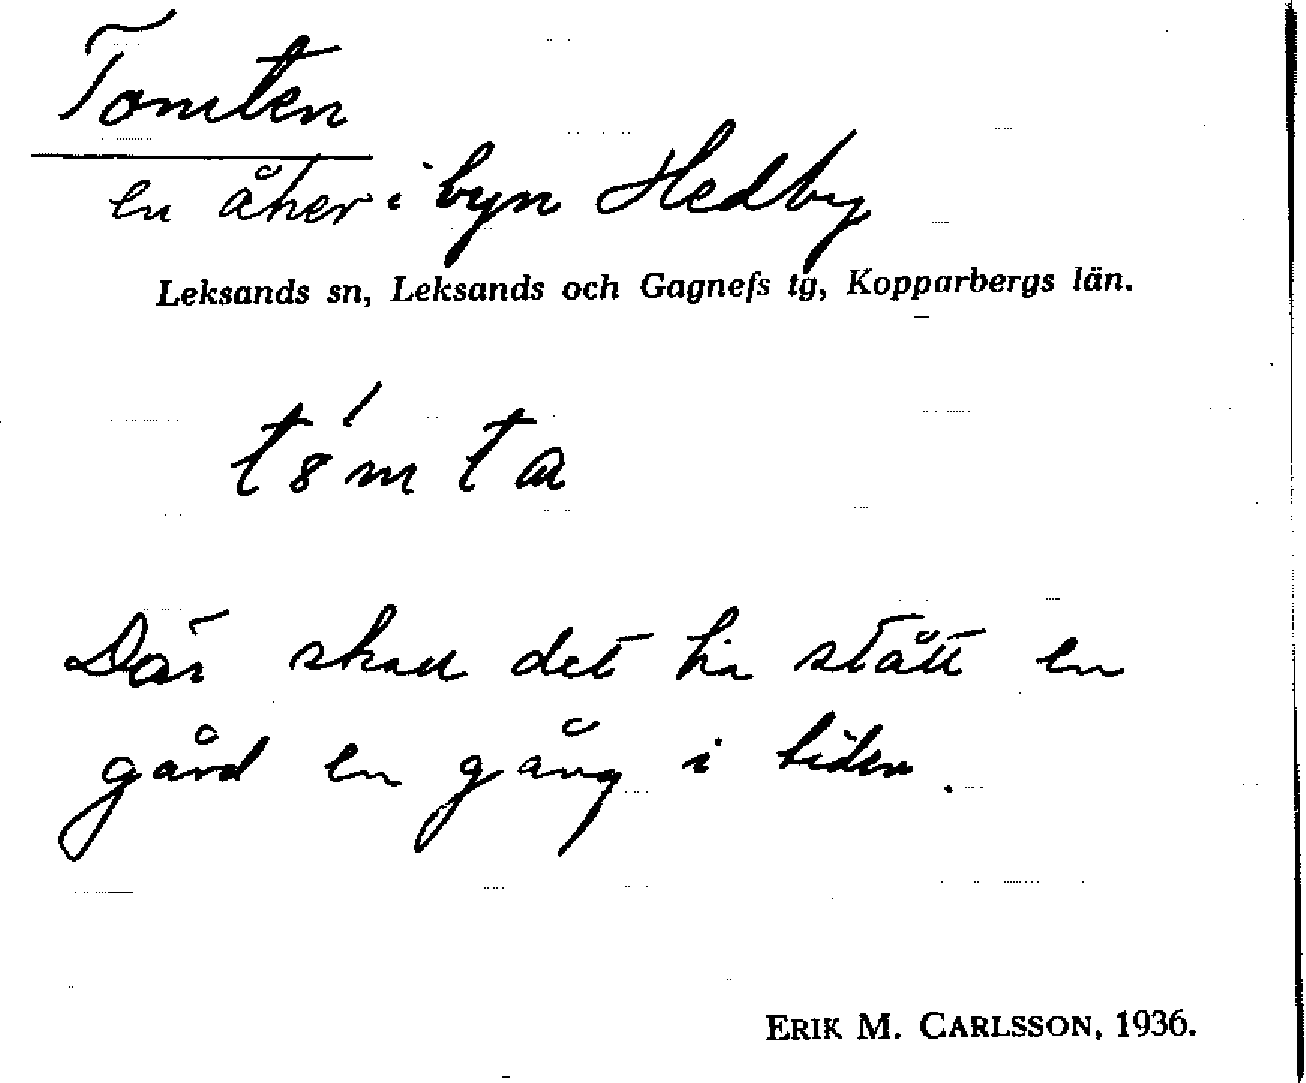 Tomten
en åker i byn Hedby
Leksands sn, Leksands och Gagnefs tg, Kopparbergs län.
t8́mta
Där skall det ha stått en
gård en gång i tiden.
ERIK M. CARLSSON, 1936.